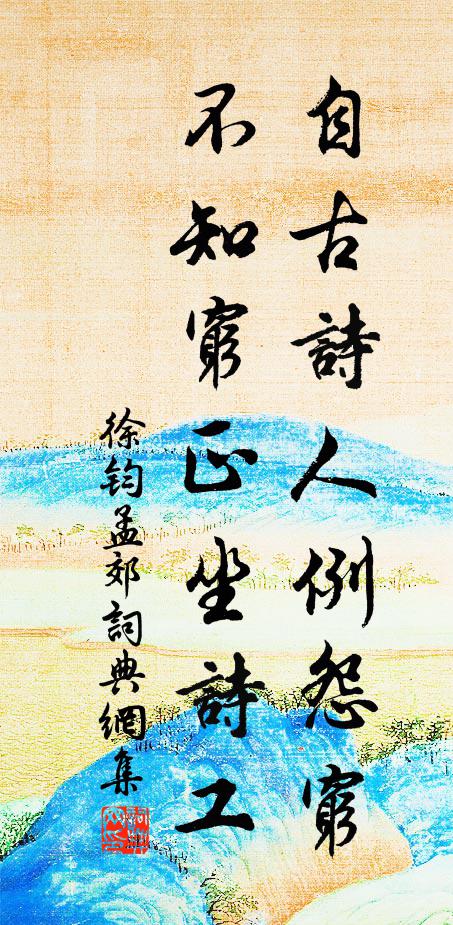 自古詩人例怨窮
不知窮正坐詩工
徐鈞孟郊詞典網集